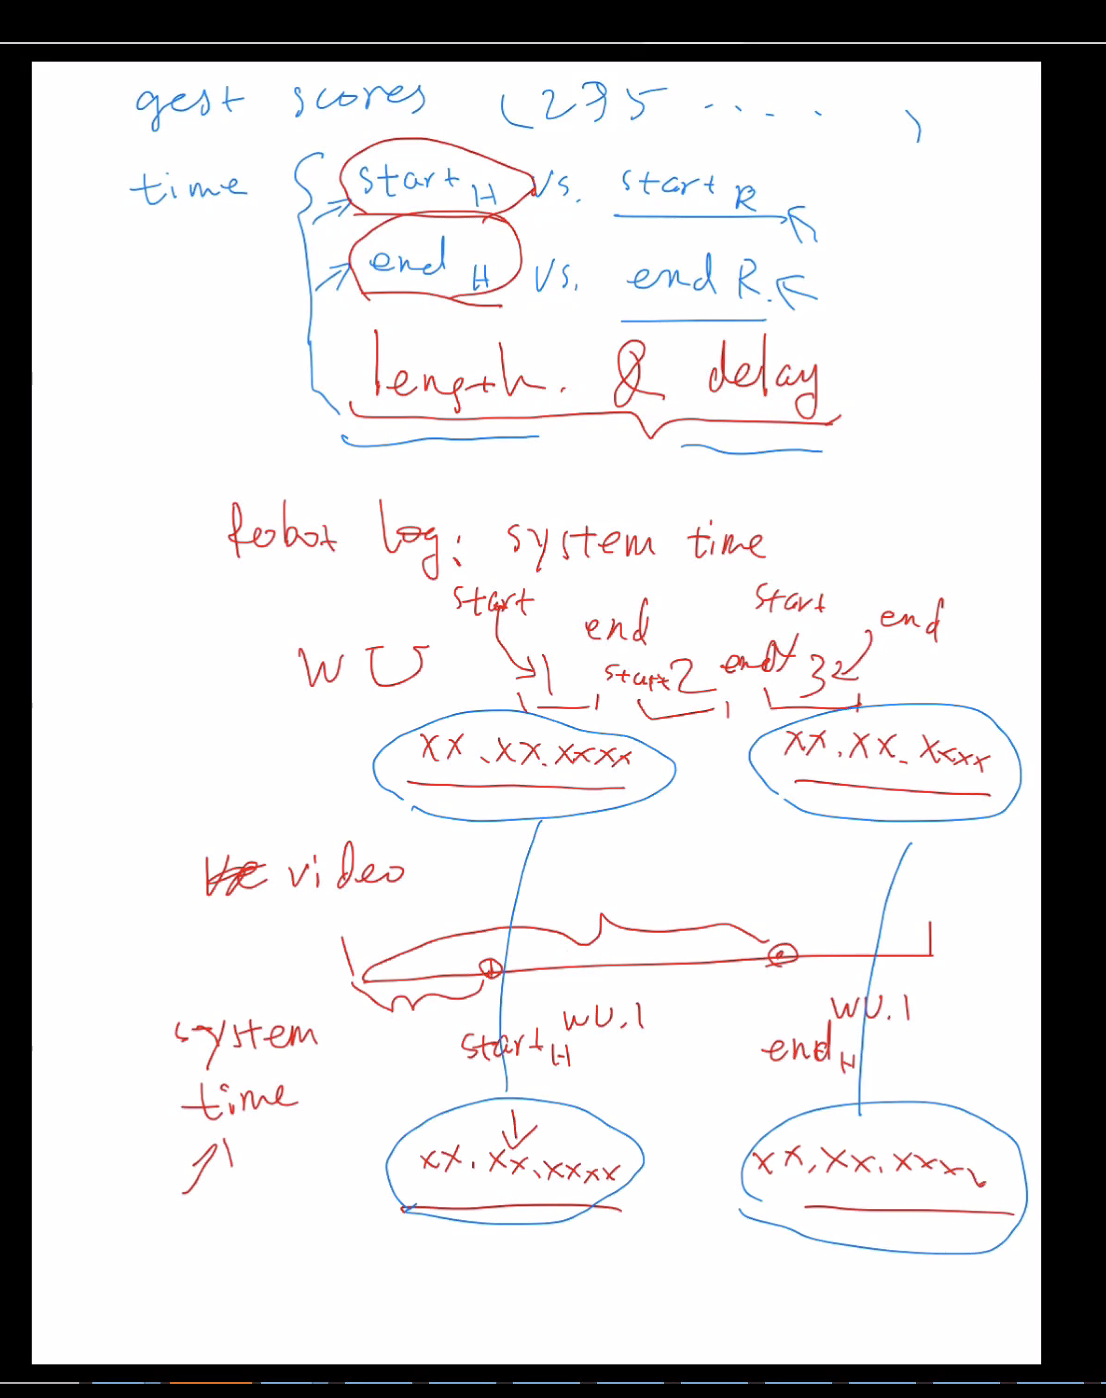 gest scores (235 .... )
time { start H vs. start R
end H vs. end R.
length. & delay
Robot log: system time
start end start end
WU 1 start 2 end 3
xx.xx.xxxx xx.xx.xxxx
video
WU.1 WU.1
system start H end H
time
xx.xx.xxxx xx.xx.xxxx